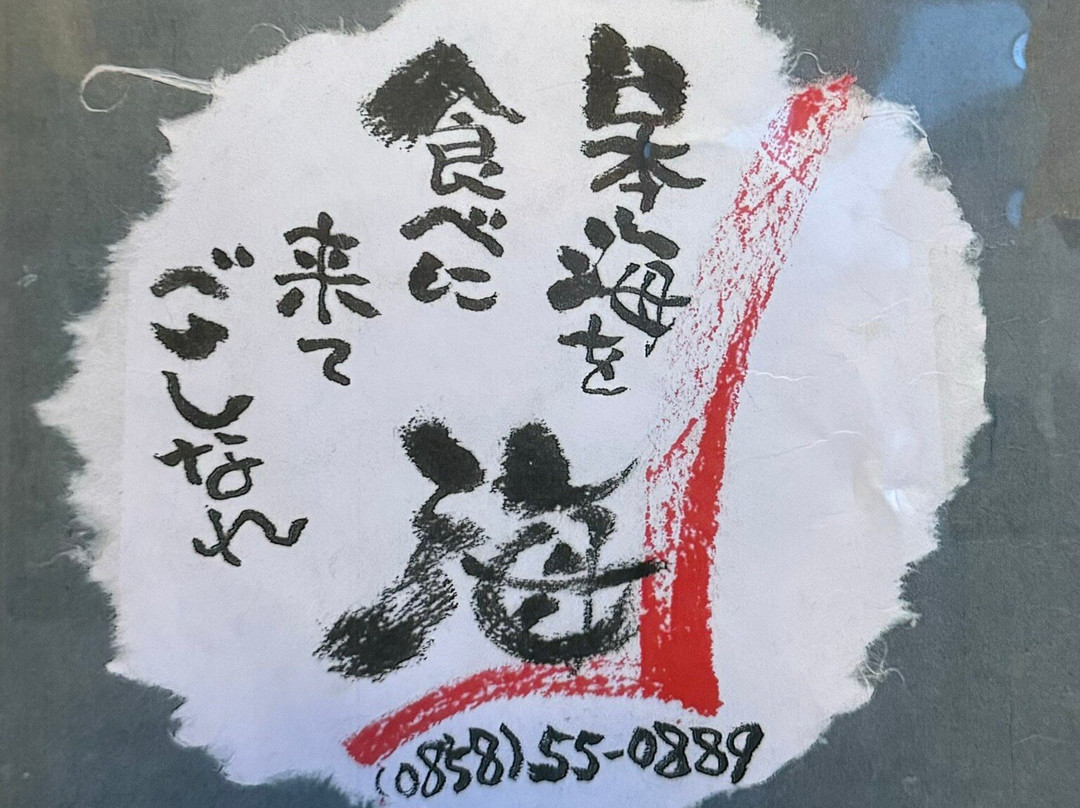 日本海を
食べに
来て
ごしなれ
海
(0858)55-0889